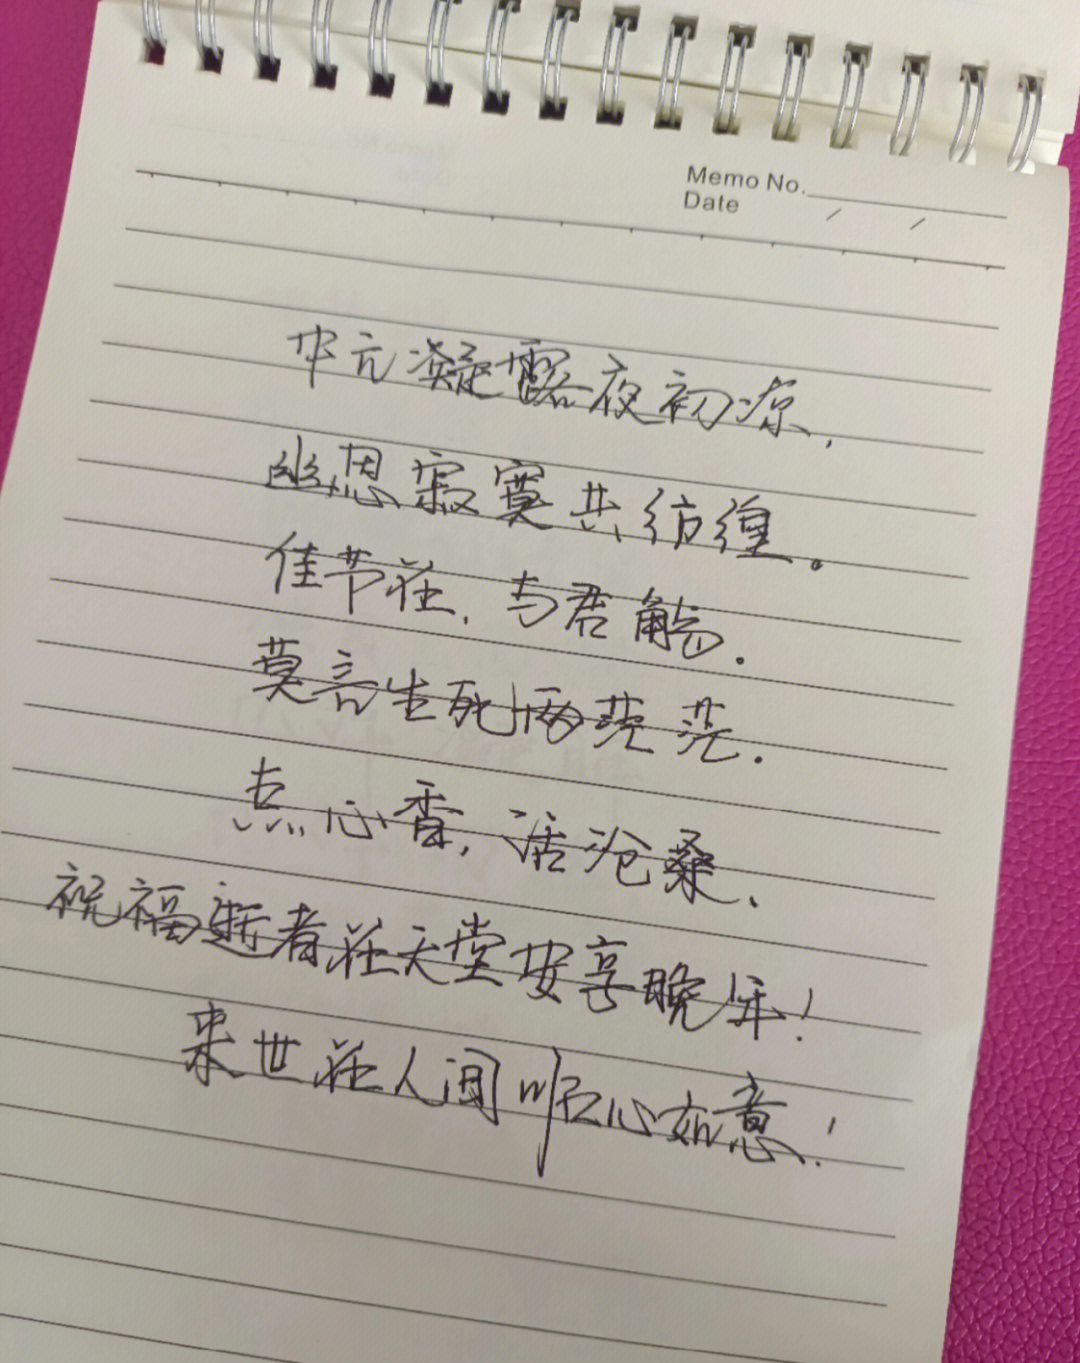 Memo No.
Date / /
中元凝露夜初凉,
幽思寂寞共彷徨。
佳节在,与君觞.
莫言生死两茫茫.
点心香,话沧桑.
祝福逝者在天堂安享晚年!
来世在人间顺心如意!